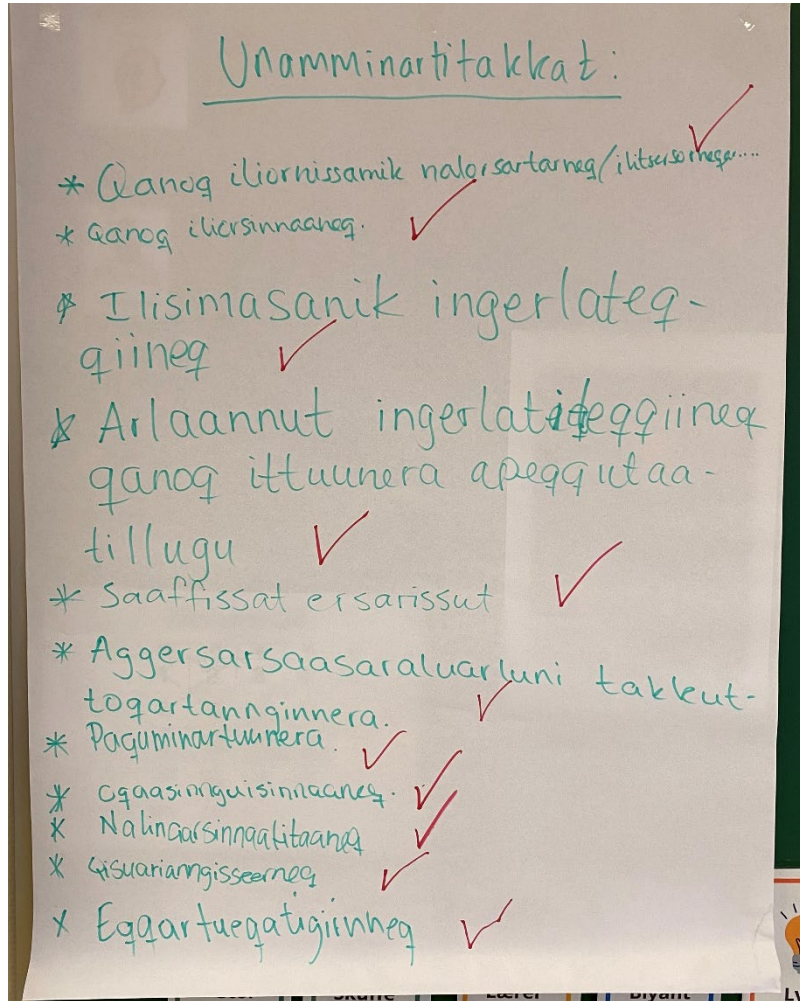 Unamminartitakkat:
* Qanoq iliornissamik nalorsartarneq/ilitsersorneqar....
* Qanoq iliorsinnaaneq.
* Ilisimasanik ingerlateq-
qiineq
* Arlaannut ingerlateqqiineq
qanoq ittuunera apeqqutaa-
tillugu
* Saaffissat ersarissut
* Aggersarsaasaraluarluni takkut-
toqartannginnera.
* Paquminartuunera.
* Oqaasinnguisinnaaneq.
* Nalinaarsinnaatitaaneq
* Qisuarianngisseerneq
* Eqqartueqatigiinneq